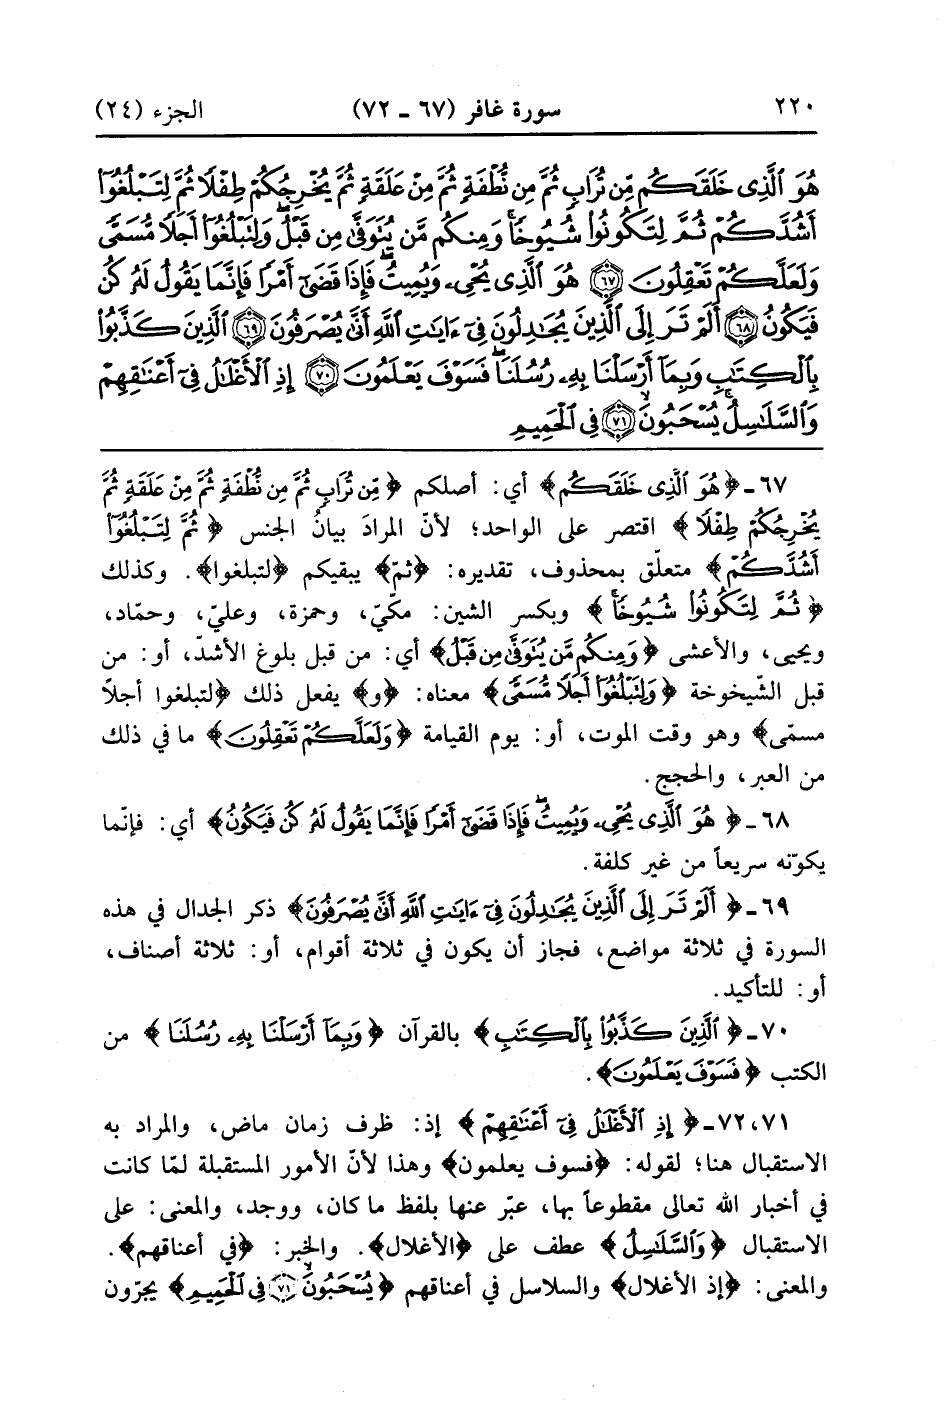 ٢٢٠ سورة غافر (٦٧ ـ ٧٢) الجزء (٢٤)
هُوَ ٱلَّذِى خَلَقَكُم مِّن تُرَابٍ ثُمَّ مِن نُّطْفَةٍ ثُمَّ مِنْ عَلَقَةٍ ثُمَّ يُخْرِجُكُمْ طِفْلًا ثُمَّ لِتَبْلُغُوٓا۟
أَشُدَّكُمْ ثُمَّ لِتَكُونُوا۟ شُيُوخًا ۚ وَمِنكُم مَّن يُتَوَفَّىٰ مِن قَبْلُ ۖ وَلِتَبْلُغُوٓا۟ أَجَلًا مُّسَمًّى
وَلَعَلَّكُمْ تَعْقِلُونَ ٦٧ هُوَ ٱلَّذِى يُحْىِۦ وَيُمِيتُ ۖ فَإِذَا قَضَىٰٓ أَمْرًا فَإِنَّمَا يَقُولُ لَهُۥ كُن
فَيَكُونُ ٦٨ أَلَمْ تَرَ إِلَى ٱلَّذِينَ يُجَٰدِلُونَ فِىٓ ءَايَٰتِ ٱللَّهِ أَنَّىٰ يُصْرَفُونَ ٦٩ ٱلَّذِينَ كَذَّبُوا۟
بِٱلْكِتَٰبِ وَبِمَآ أَرْسَلْنَا بِهِۦ رُسُلَنَا ۖ فَسَوْفَ يَعْلَمُونَ ٧٠ إِذِ ٱلْأَغْلَٰلُ فِىٓ أَعْنَٰقِهِمْ
وَٱلسَّلَٰسِلُ يُسْحَبُونَ ٧١ فِى ٱلْحَمِيمِ
٦٧ ـ ﴿هُوَ ٱلَّذِى خَلَقَكُم﴾ أي: أصلكم ﴿مِّن تُرَابٍ ثُمَّ مِن نُّطْفَةٍ ثُمَّ مِنْ عَلَقَةٍ ثُمَّ
يُخْرِجُكُمْ طِفْلًا﴾ اقتصر على الواحد؛ لأنّ المرادَ بيانُ الجنس ﴿ثُمَّ لِتَبْلُغُوٓا۟
أَشُدَّكُمْ﴾ متعلّق بمحذوف، تقديره: ﴿ثمّ﴾ يبقيكم ﴿لتبلغوا﴾. وكذلك
﴿ثُمَّ لِتَكُونُوا۟ شُيُوخًا ۚ﴾ وبكسر الشين: مكّيّ، وحمزة، وعليّ، وحمّاد،
ويحيى، والأعشى ﴿وَمِنكُم مَّن يُتَوَفَّىٰ مِن قَبْلُ﴾ أي: من قبل بلوغ الأشدّ، أو: من
قبل الشّيخوخة ﴿وَلِتَبْلُغُوٓا۟ أَجَلًا مُّسَمًّى﴾ معناه: ﴿و﴾ يفعل ذلك ﴿لتبلغوا أجلاً
مسمّى﴾ وهو وقت الموت، أو: يوم القيامة ﴿وَلَعَلَّكُمْ تَعْقِلُونَ﴾ ما في ذلك
من العبر، والحجج.
٦٨ ـ ﴿هُوَ ٱلَّذِى يُحْىِۦ وَيُمِيتُ ۖ فَإِذَا قَضَىٰٓ أَمْرًا فَإِنَّمَا يَقُولُ لَهُۥ كُن فَيَكُونُ﴾ أي: فإنّما
يكوّنه سريعاً من غير كلفة.
٦٩ ـ ﴿أَلَمْ تَرَ إِلَى ٱلَّذِينَ يُجَٰدِلُونَ فِىٓ ءَايَٰتِ ٱللَّهِ أَنَّىٰ يُصْرَفُونَ﴾ ذكر الجدال في هذه
السورة في ثلاثة مواضع، فجاز أن يكون في ثلاثة أقوام، أو: ثلاثة أصناف،
أو: للتأكيد.
٧٠ ـ ﴿ٱلَّذِينَ كَذَّبُوا۟ بِٱلْكِتَٰبِ﴾ بالقرآن ﴿وَبِمَآ أَرْسَلْنَا بِهِۦ رُسُلَنَا﴾ من
الكتب ﴿فَسَوْفَ يَعْلَمُونَ﴾.
٧١، ٧٢ ـ ﴿إِذِ ٱلْأَغْلَٰلُ فِىٓ أَعْنَٰقِهِمْ﴾ إذ: ظرف زمان ماض، والمراد به
الاستقبال هنا؛ لقوله: ﴿فسوف يعلمون﴾ وهذا لأنّ الأمور المستقبلة لمّا كانت
في أخبار الله تعالى مقطوعاً بها، عبّر عنها بلفظ ما كان، ووجد، والمعنى: على
الاستقبال ﴿وَٱلسَّلَٰسِلُ﴾ عطف على ﴿الأغلال﴾. والخبر: ﴿في أعناقهم﴾.
والمعنى: ﴿إذ الأغلال﴾ والسلاسل في أعناقهم ﴿يُسْحَبُونَ ٧١ فِى ٱلْحَمِيمِ﴾ يجرّون